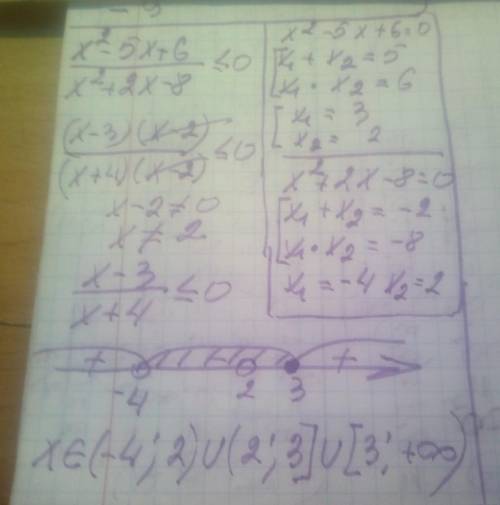 x²-5x+6 / x²+2x-8 ≤0
(x-3)(x-2) / (x+4)(x-2) ≤0
x-2≠0
x≠2
x-3 / x+4 ≤0
x²-5x+6=0
[x₁+x₂=5
x₁·x₂=6
[x₁=3
x₂=2
x²+2x-8=0
[x₁+x₂=-2
x₁·x₂=-8
x₁=-4 x₂=2
+ - +
-4 2 3
x∈(-4;2)∪(2;3]∪[3;+∞)